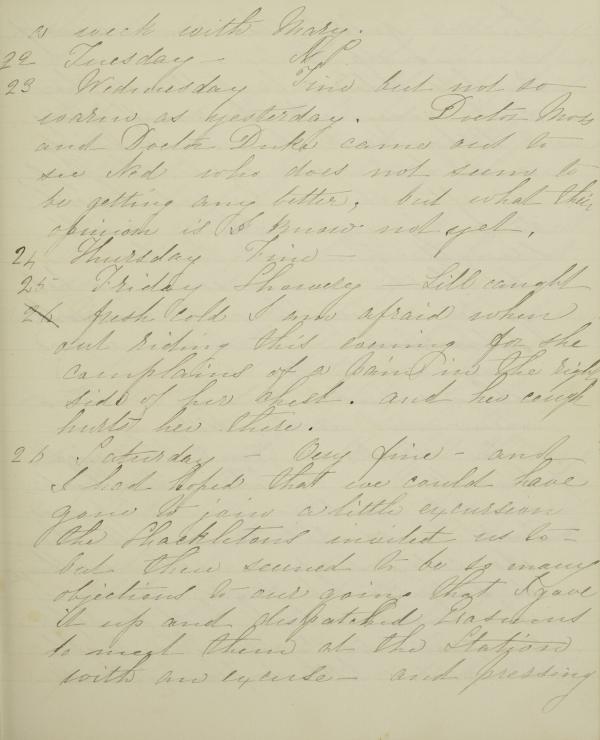 a week with Mary.
22 Tuesday —
23 Wednesday Fine but not so
warm as yesterday. Doctor Moss
and Doctor Duke came out to
see Ned who does not seem to
be getting any better, but what their
opinion is I know not yet.
24 Thursday Fine —
25 Friday Showery — Lill caught
26 fresh cold I am afraid when
out riding this evening for she
complains of a pain in the right
side of her chest. and her cough
hurts her there.
26 Saturday — Very fine — and
I had hoped that we could have
gone to join a little excursion
the Shackletons invited us to —
but there seemed to be so many
objections to our going that I gave
it up and dispatched Erasmus
to meet them at the Station
with an excuse — and pressing